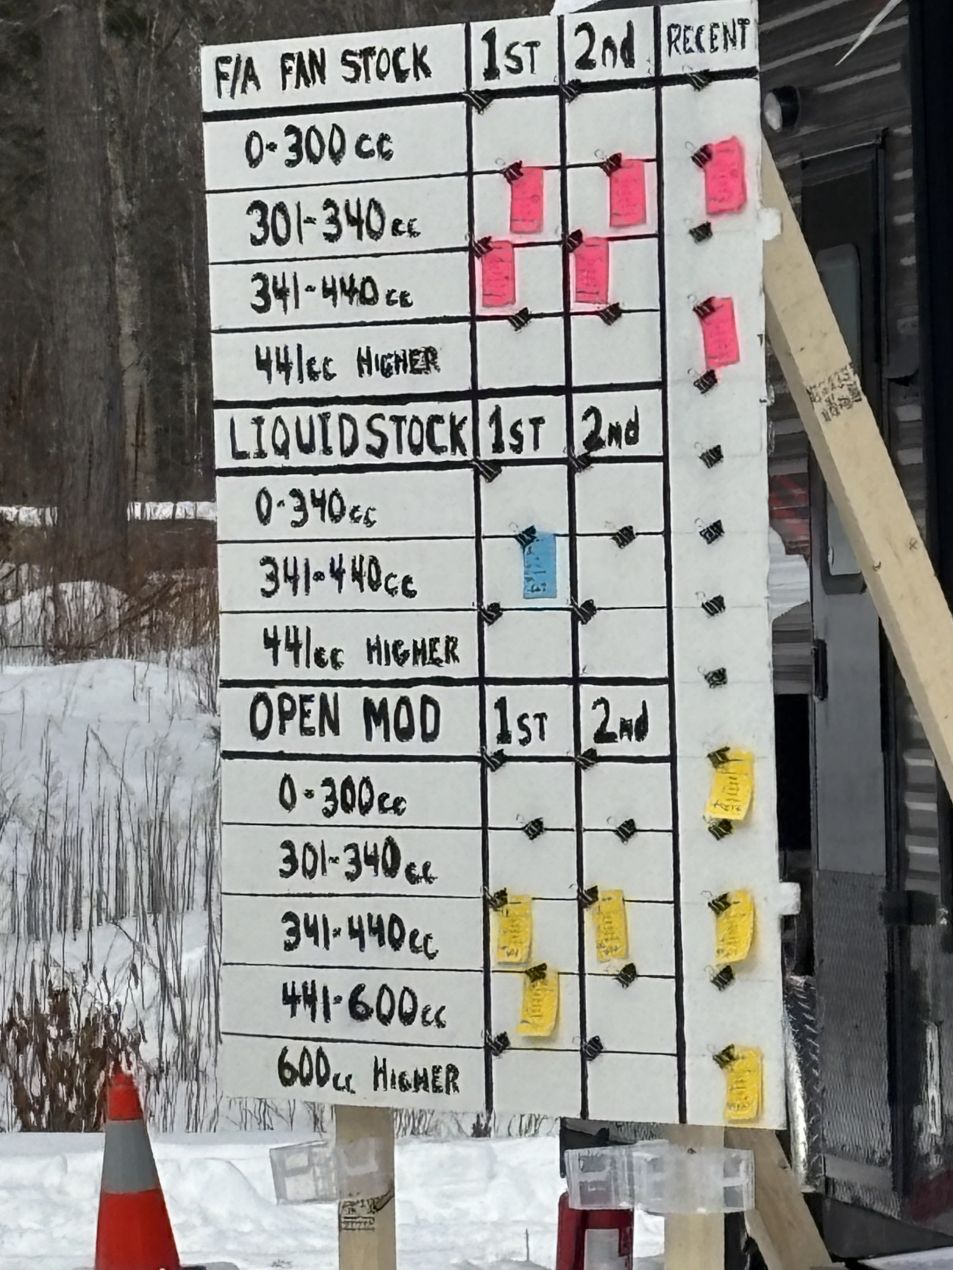 F/A FAN STOCK 1ST 2nd RECENT
0-300cc
301-340cc
341-440cc
441cc HIGHER
LIQUID STOCK 1ST 2nd
0-340cc
341-440cc
441cc HIGHER
OPEN MOD 1ST 2nd
0-300cc
301-340cc
341-440cc
441-600cc
600cc HIGHER